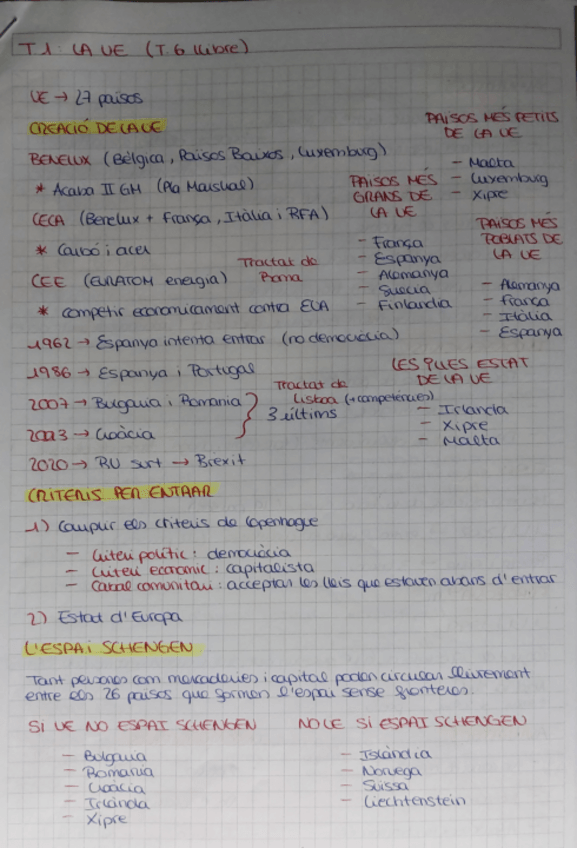 T.1: LA UE (T.6 llibre)
UE → 27 països
CREACIÓ DE LA UE
BENELUX (Bèlgica, Països Baixos, Luxemburg)
* Acaba II GM (Pla Marshal)
CECA (Benelux + França, Itàlia i RFA)
* Carbó i acer
CEE (EURATOM energia) Tractat de Roma
* competir economicament contra EUA
1962 → Espanya intenta entrar (no democràcia)
1986 → Espanya i Portugal
2007 → Bulgaria i Romania
2013 → Croàcia
3 últims
Tractat de Lisboa (+ competències)
2020 → RU surt → Brexit
PAÏSOS MÉS PETITS
DE LA UE
- Malta
- Luxemburg
- Xipre
PAÏSOS MÉS
GRANS DE
LA UE
- França
- Espanya
- Alemanya
- Suècia
- Finlandia
PAÏSOS MÉS
POBLATS DE
LA UE
- Alemanya
- França
- Itàlia
- Espanya
LES ILLES ESTAT
DE LA UE
- Irlanda
- Xipre
- Malta
CRITERIS PER ENTRAR
1) Complir els criteris de Copenhague
- Criteri polític: democràcia
- Criteri econòmic: capitalista
- Cabal comunitari: acceptar les lleis que estaven abans d'entrar
2) Estat d'Europa
L'ESPAI SCHENGEN
Tant persones com mercaderies i capital poden circular lliurement
entre els 26 països que formen l'espai sense fronteres.
SI UE NO ESPAI SCHENGEN
- Bulgaria
- Romania
- Croàcia
- Irlanda
- Xipre
NO UE SI ESPAI SCHENGEN
- Islàndia
- Noruega
- Suïssa
- Liechtenstein